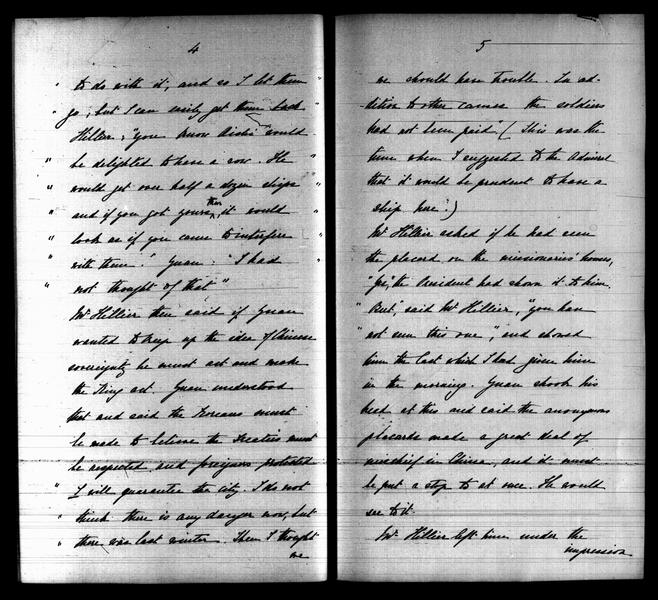 4
" to do with it, and so I let them "
" go, but I can easily get them back
Hillier; "you know Aishi" would
" be delighted to have a row. He "
" would get over half a dozen ships "
" and if you got yours then, it would "
" look as if you came to interfere
" with them." Yuan: "I had
" not thought of that"
Mr Hillier then said if Yuan
wanted to keep up the idea of Chinese
sovereignty he must act and make
the King act Yuan understood
that and said the Koreans must
be made to believe the Treaties must
be respected and foreigners protected
" I will guarantee the city. I do not
" think there is any danger now, but
" there was last winter. Then I thought
we
5
we should have trouble. In ad-
-dition to other causes the soldiers
had not been paid" (This was the
time when I suggested to the Admiral
that it would be prudent to have a
ship here.)
Mr Hillier asked if he had seen
the placard on the missionaries' houses,
"Yes," the President had shown it to him.
" But," said Mr Hillier, "you have
" not seen this one", and showed
him the last which I had given him
in the morning. Yuan shook his
head at this and said the anonymous
placards made a great deal of
mischief in China, and it must
be put a stop to at once. He would
see to it.
Mr Hillier left him under the
impression